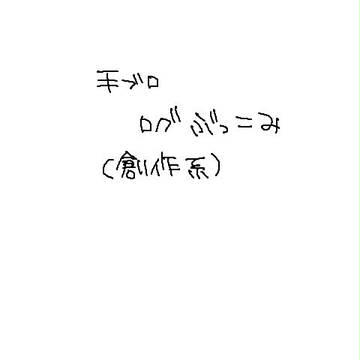 手ブロ
ログぶっこみ
(創作系)